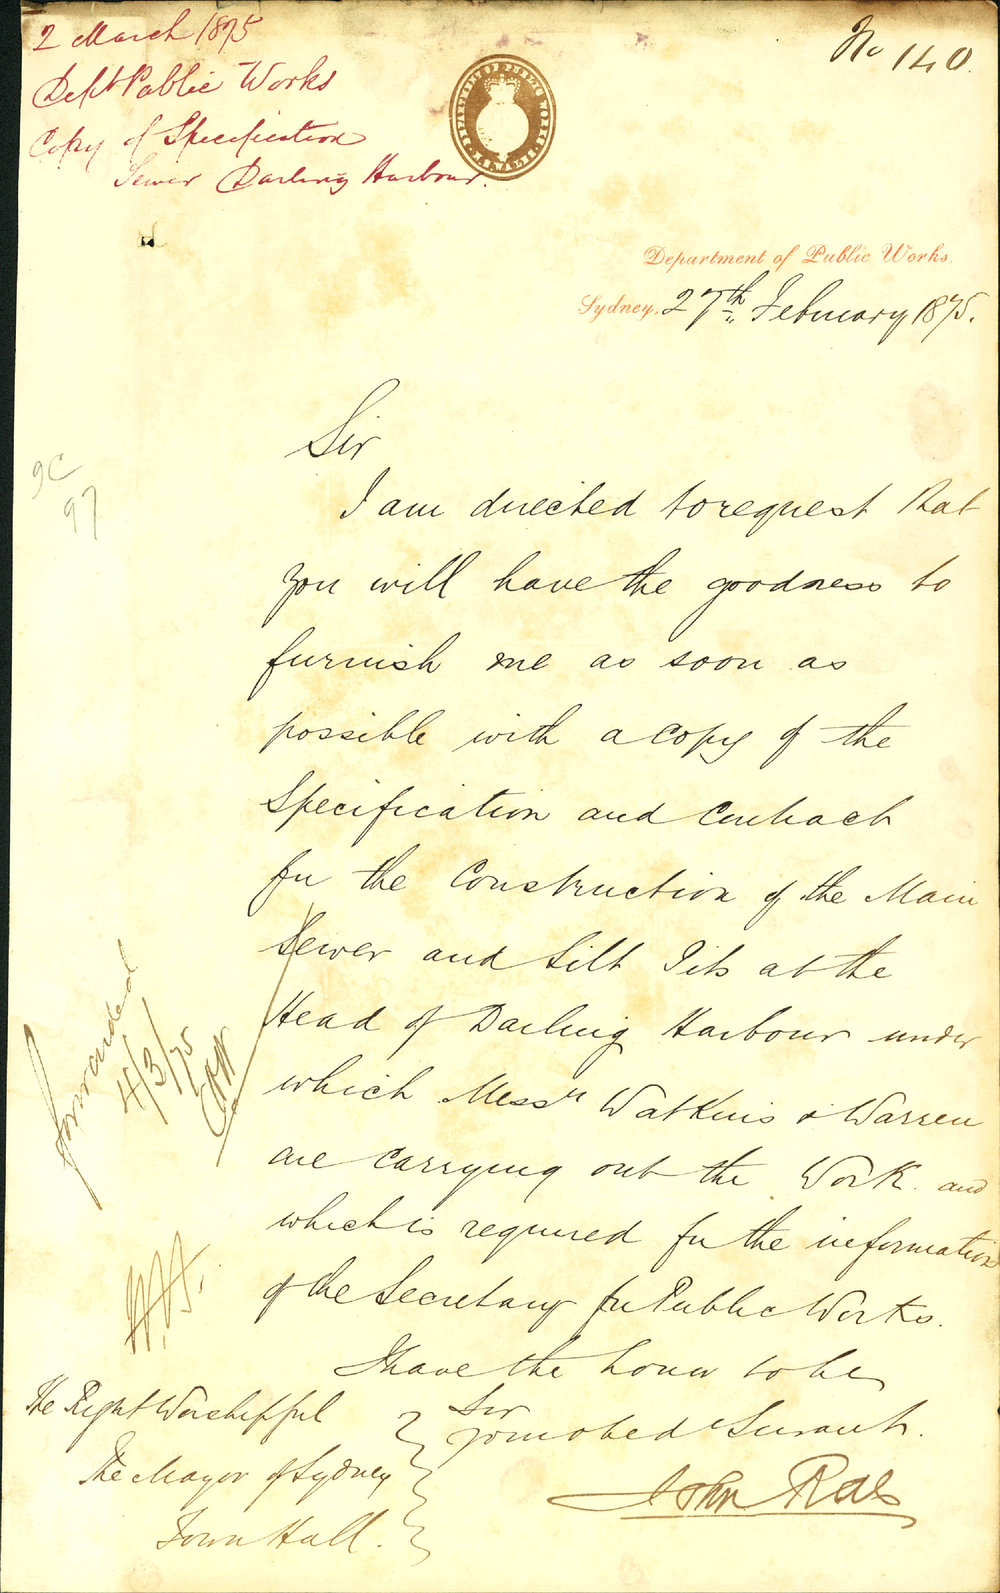 2 March 1875
Dept Public Works
Copy of Specification
Sewer Darling Harbour.
No 140.
DEPARTMENT OF PUBLIC WORKS
Department of Public Works,
Sydney, 27th February 1875.
Sir
I am directed to request that
you will have the goodness to
furnish me as soon as
possible with a copy of the
Specification and Contract
for the Construction of the Main
Sewer and Silt Pits at the
Head of Darling Harbour under
which Messrs Watkins & Warren
are carrying out the Work and
which is required for the information
of the Secretary for Public Works.
I have the honor to be
Sir
your obed Servant.
John Rae
The Right Worshipful
The Mayor of Sydney
Town Hall.
forwarded
4/3/75
9C
97